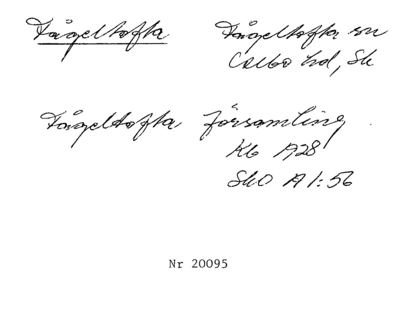 Fågeltofta Fågeltofta sn
Albo hd, Sk
Fågeltofta församling
Kb A28
SkO A 1:56
Nr 20095